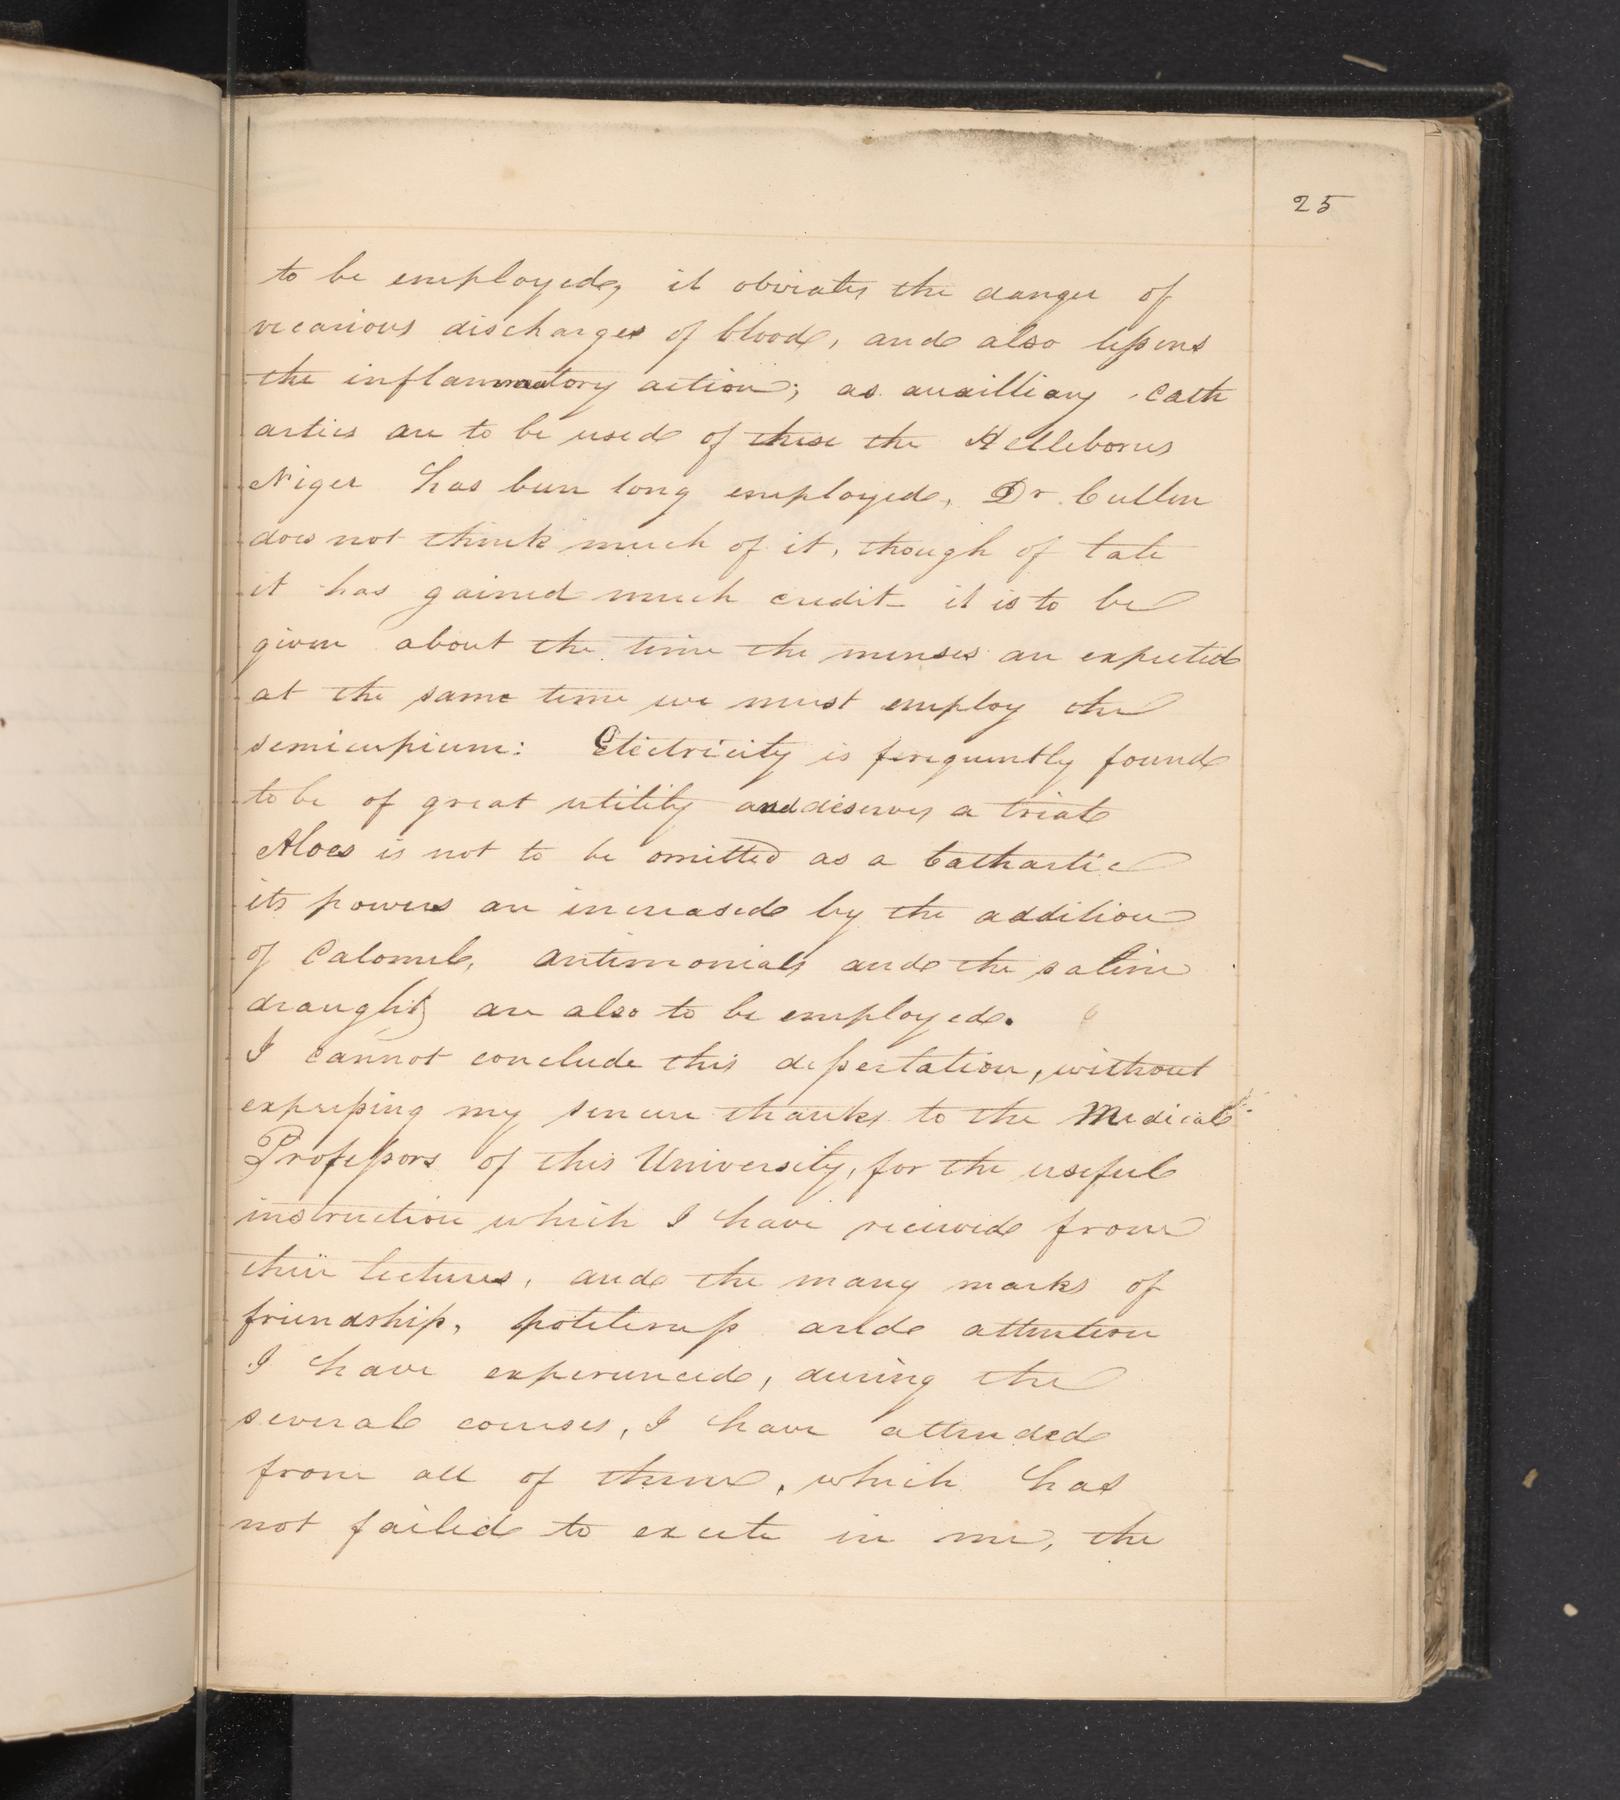 25
to be employed, it obviates the danger of
vicarious discharges of blood, and also lessens
the inflammatory action; as auxilliary Cath
artics are to be used of these the Helleborus
Niger has been long employed, Dr. Cullen
does not think much of it, though of late
it has gained much credit it is to be
given about the time the menses are expected
at the same time we must employ the
semicupium: Electricity is frequently found
to be of great utility and deserves a trial
Aloes is not to be omitted as a Cathartic
its powers are increased by the addition
of Calomel, Antimonials and the saline
draughts are also to be employed.
I cannot conclude this dissertation, without
expressing my sincere thanks to the Medical
Professors of this University, for the useful
instruction which I have received from
their lectures, and the many marks of
friendship, politeness and attention
I have experienced, during the
several courses, I have attended
from all of them, which has
not failed to excite in me, the